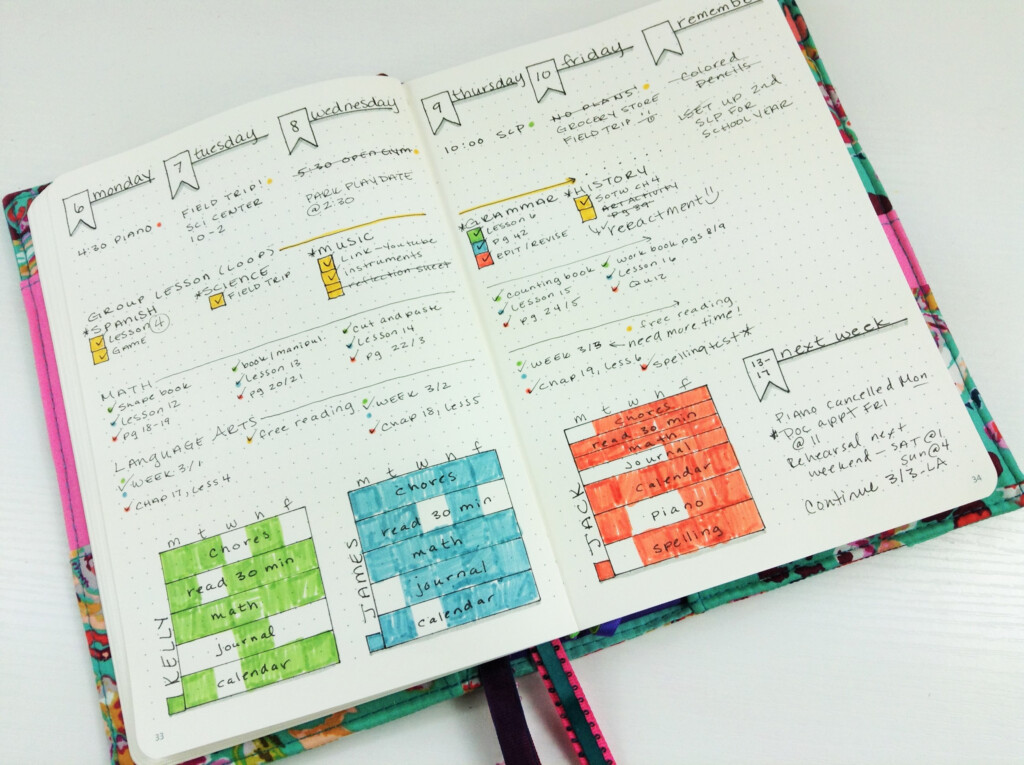 6 monday
4:30 PIANO
7 tuesday
FIELD TRIP!
SCI CENTER
10-2
8 wednesday
5:30 OPEN GYM
PARK PLAYDATE
@ 2:30
GROUP LESSON (LOOP)
*SPANISH
Lesson 4
GAME
*SCIENCE
FIELD TRIP
*MUSIC
Link-Youtube
instruments
reflection sheet
MATH
shape book
Lesson 12
pg 18-19
book/manipul
Lesson 13
pg 20/21
cut and paste
Lesson 14
pg 22/3
LANGUAGE ARTS
WEEK 3/1
CHAP 17, Less 4
free reading
WEEK 3/2
Chap 18, Less 5
KELLY
m t w h f
chores
read 30 min
math
journal
calendar
JAMES
m t w h f
chores
read 30 min
math
journal
calendar
33
9 thursday
10:00 SLP
10 friday
NO PLANS!
GROCERY STORE
FIELD TRIP
remember
colored
pencils
SET UP 2nd
SLP FOR
SCHOOL YEAR
*GRAMMAR
Lesson 6
pg 42
EDIT/REVISE
*HISTORY
SOTW CH 4
ART ACTIVITY
pg 39
reenactment
counting book
Lesson 15
pg 24/5
work book pgs 8/9
Lesson 16
Quiz
WEEK 3/3
Chap 19, Less 6
free reading
need more time!
spelling test
JACK
m t w h f
chores
read 30 min
math
journal
calendar
piano
spelling
13-
17
next week
Piano cancelled Mon
*Doc appt FRI
@ 11
Rehearsal next
weekend - SAT @ 1
Sun @ 4
Continue 3/3-LA
34